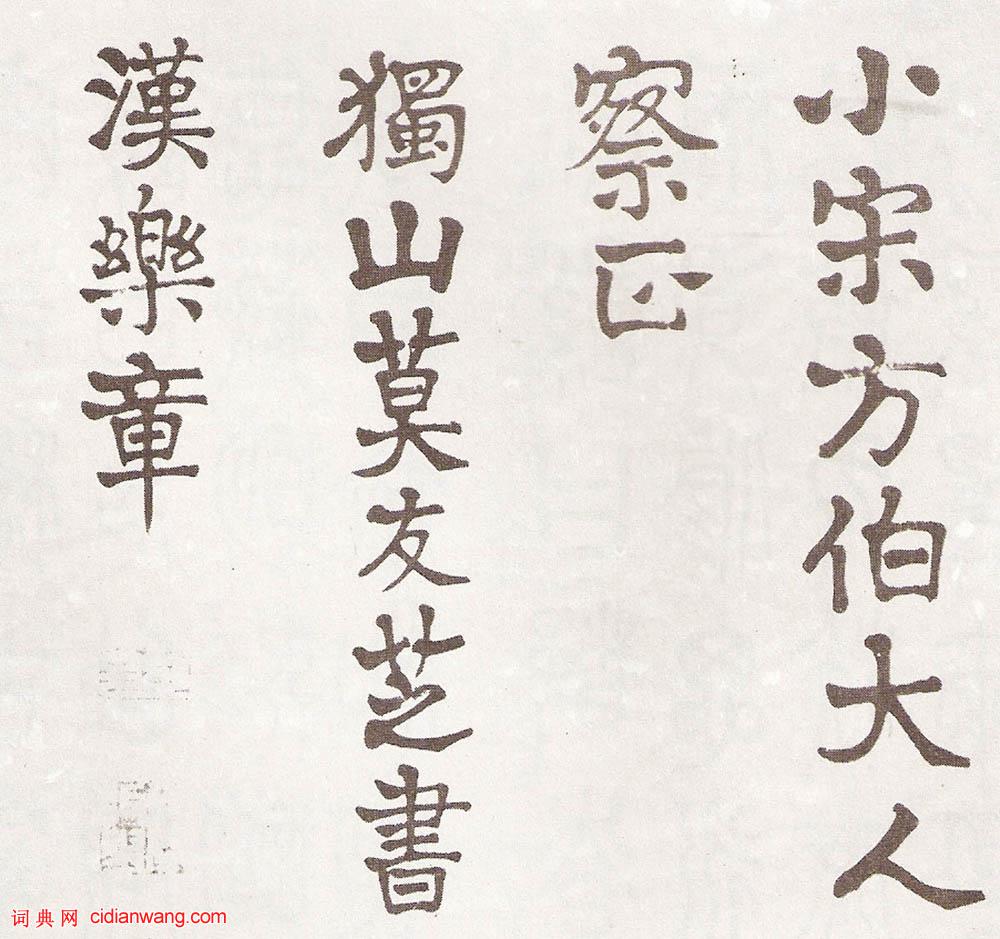 小宋方伯大人
察正
獨山莫友芝書
漢樂章
词典网 cidianwang.com